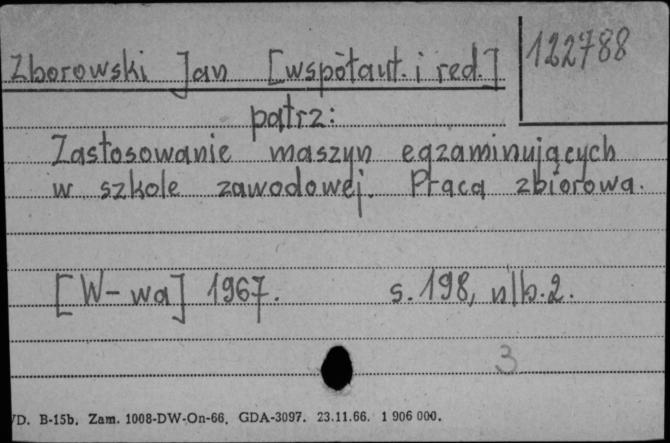 122788
Zborowski Jan [współaut. i red.]
patrz:
Zastosowanie maszyn egzaminujących
w szkole zawodowej. Praca zbiorowa.
[W-wa] 1967. s. 198, nlb. 2.
3
D. B-15b. Zam. 1008-DW-On-66. GDA-3097. 23.11.66. 1 906 000.